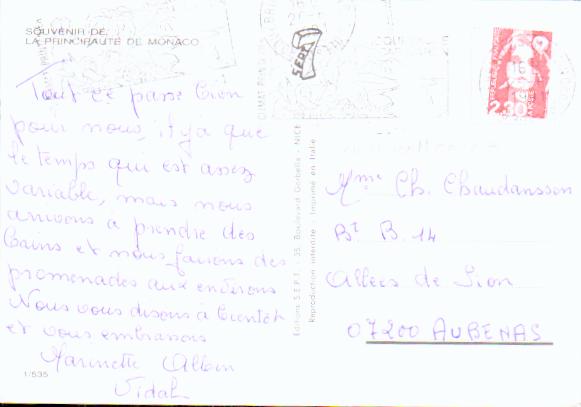 SOUVENIR DE
LA PRINCIPAUTE DE MONACO
Tout ce passe bien
pour nous, il y a que
le temps qui est assez
variable, mais nous
arrivons à prendre des
bains et nous faisons des
promenades aux environs
Nous vous disons à bientôt
et vous embrassons
Marinette Albin
Vidal
1/535
Editions S.E.P.T. - 35, Boulevard Gorbella - NICE
Reproduction interdite - Imprimé en Italie
SEPT
2,30
Mme Ch. Chaudansson
Bt B. 14
Allées de Sion
07200 AUBENAS